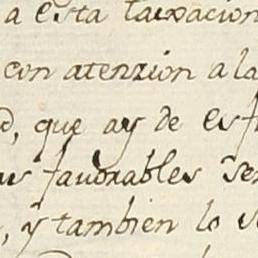 a esta taxacion
con atenzion a la
que ay de es
favorables se
y tambien lo s